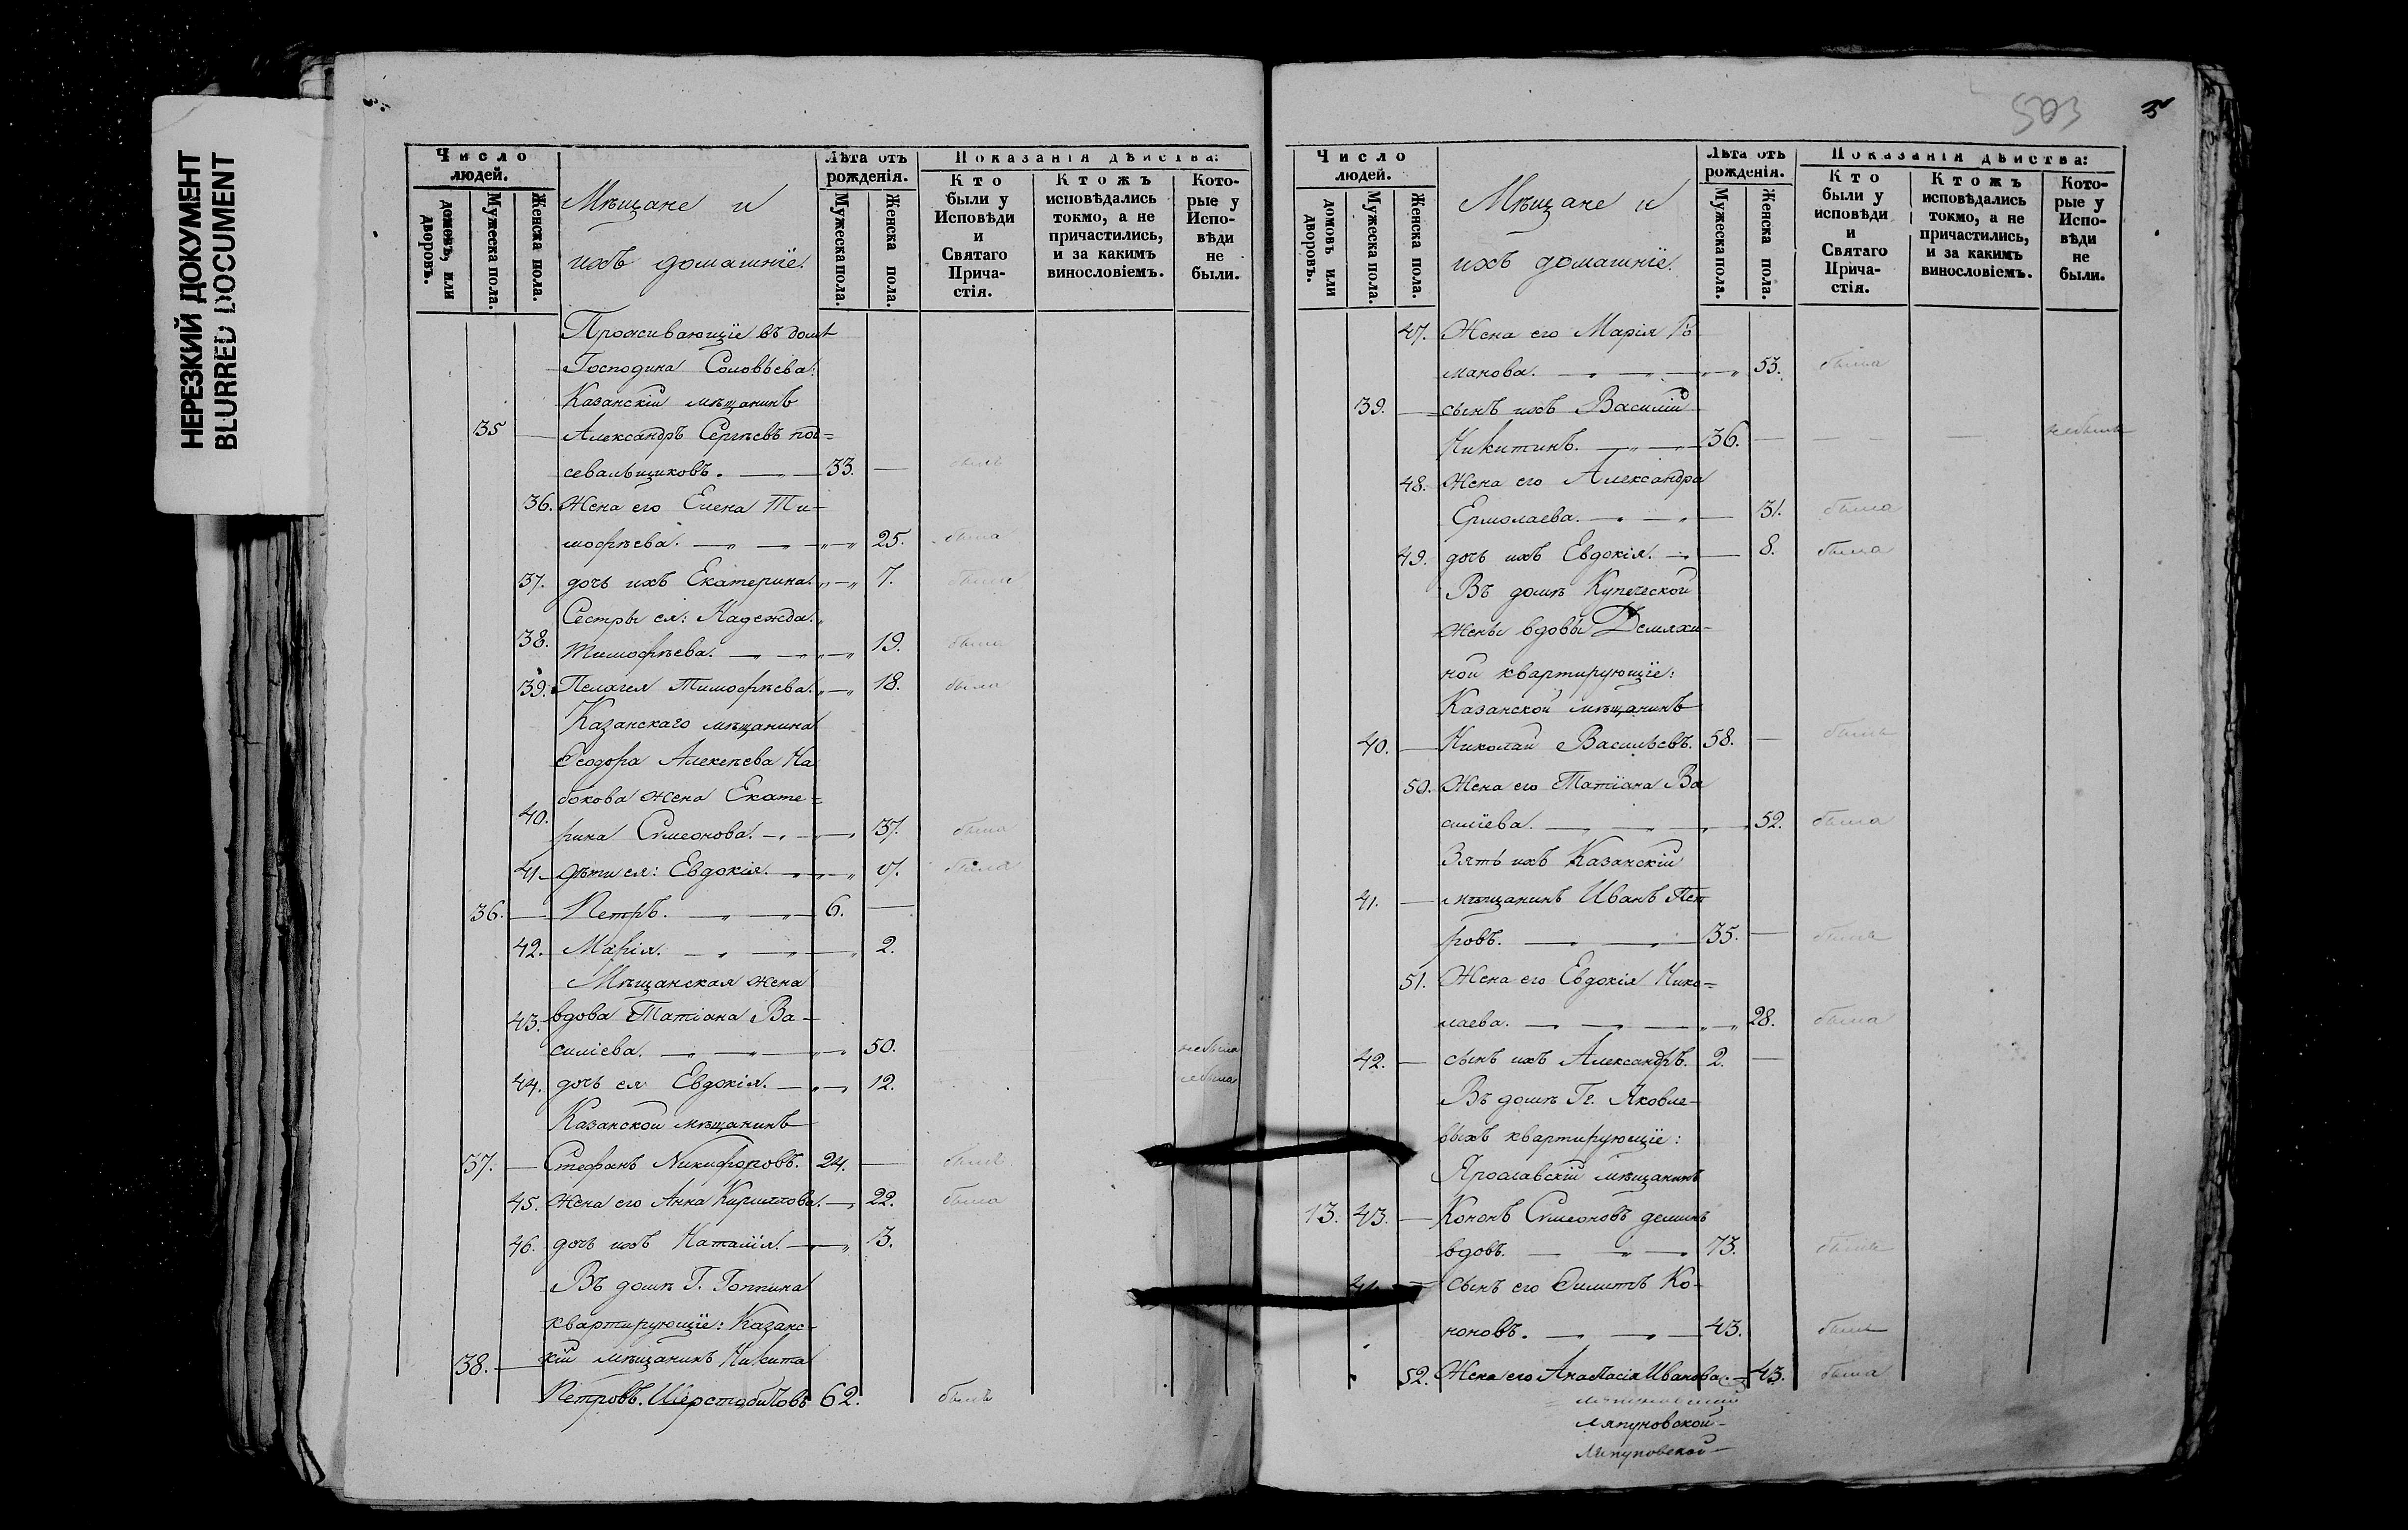 НЕРЕЗКИЙ ДОКУМЕНТ
BLURRED DOCUMENT
Число людей.
домовъ, или дворовъ.
Мужеска пола.
Женска пола.
Мѣщане и
ихъ домашніе.
Лѣта отъ рожденія.
Мужеска пола.
Женска пола.
Показанія дѣйства:
Кто были у Исповѣди и Святаго Прича-стія.
Ктожъ исповѣдались токмо, а не причастились, и за какимъ винословіемъ.
Кото-рые у Испо-вѣди не были.
Проживающіе въ домѣ
Господина Соловьева:
Казанскій мѣщанинъ
35 Александръ Сергѣевъ под=
севальщиковъ. 33. былъ
36. Жена его Елена Ти-
мофѣева. 25. была
37. дочь ихъ Екатерина. 7. была
Сестры ея: Надежда
38. Тимофѣева. 19. была
39. Пелагея Тимофѣева. 18. была
Казанскаго мѣщанина
Ѳеодора Алексѣева На
бокова жена Екате=
40. рина Симеонова. 37. была
41. дѣти ея: Евдокія. была
36. Петръ. 6.
42. Марія. 2.
Мѣщанская жена
43. вдова Татіана Ва-
силіева. 50. небыла
44. дочь ея Евдокія. 12. небыла
Казанской мѣщанинъ
37. Стефанъ Никифоровъ. 24. былъ
45. Жена его Анна Кириллова. 22. была
46. дочь ихъ Наталія. 3.
Въ домѣ Г. Топпина
квартирующіе: Казанс-
38. кій мѣщанинъ Никита
Петровъ. Шерстобитовъ 62. былъ
503
Число людей.
домовъ или дворовъ.
Мужеска пола.
Женска пола.
Мѣщане и
ихъ домашніе.
Лѣта отъ рожденія.
Мужеска пола.
Женска пола.
Показанія дѣйства:
Кто были у исповѣди и Святаго Прича-стія.
Ктожъ исповѣдались токмо, а не причастились, и за какимъ винословіемъ.
Кото-рые у Испо-вѣди не были.
47. Жена его Марія Ро
манова. 53. была
39. сынъ ихъ Василій
Никитинъ. 36. небылъ
48. Жена его Александра
Ермолаева. 31. была
49. дочь ихъ Евдокія. 8. была
Въ домѣ Купеческой
жены вдовы Демяхи-
ной квартирующіе:
Казанской мѣщанинъ
40. Николай Васильевъ. 58. былъ
50. Жена его Татіана Ва
силіева. 52. была
Зять ихъ Казанскій
41. мѣщанинъ Иванъ Пет
ровъ. 35. былъ
51. Жена его Евдокія Нико=
лаева. 28. была
42. сынъ ихъ Александръ. 2.
Въ домѣ Гг. Яковле-
выхъ квартирующіе:
Ярославскій мѣщанинъ
13. 43. Кононъ Симеоновъ деминъ
вдовъ. 73. былъ
44. сынъ его Филиппъ Ко-
ноновъ. 43. былъ
52. Жена его Анастасія Иванова. 43. была
Ляпуновской
Ляпуновской